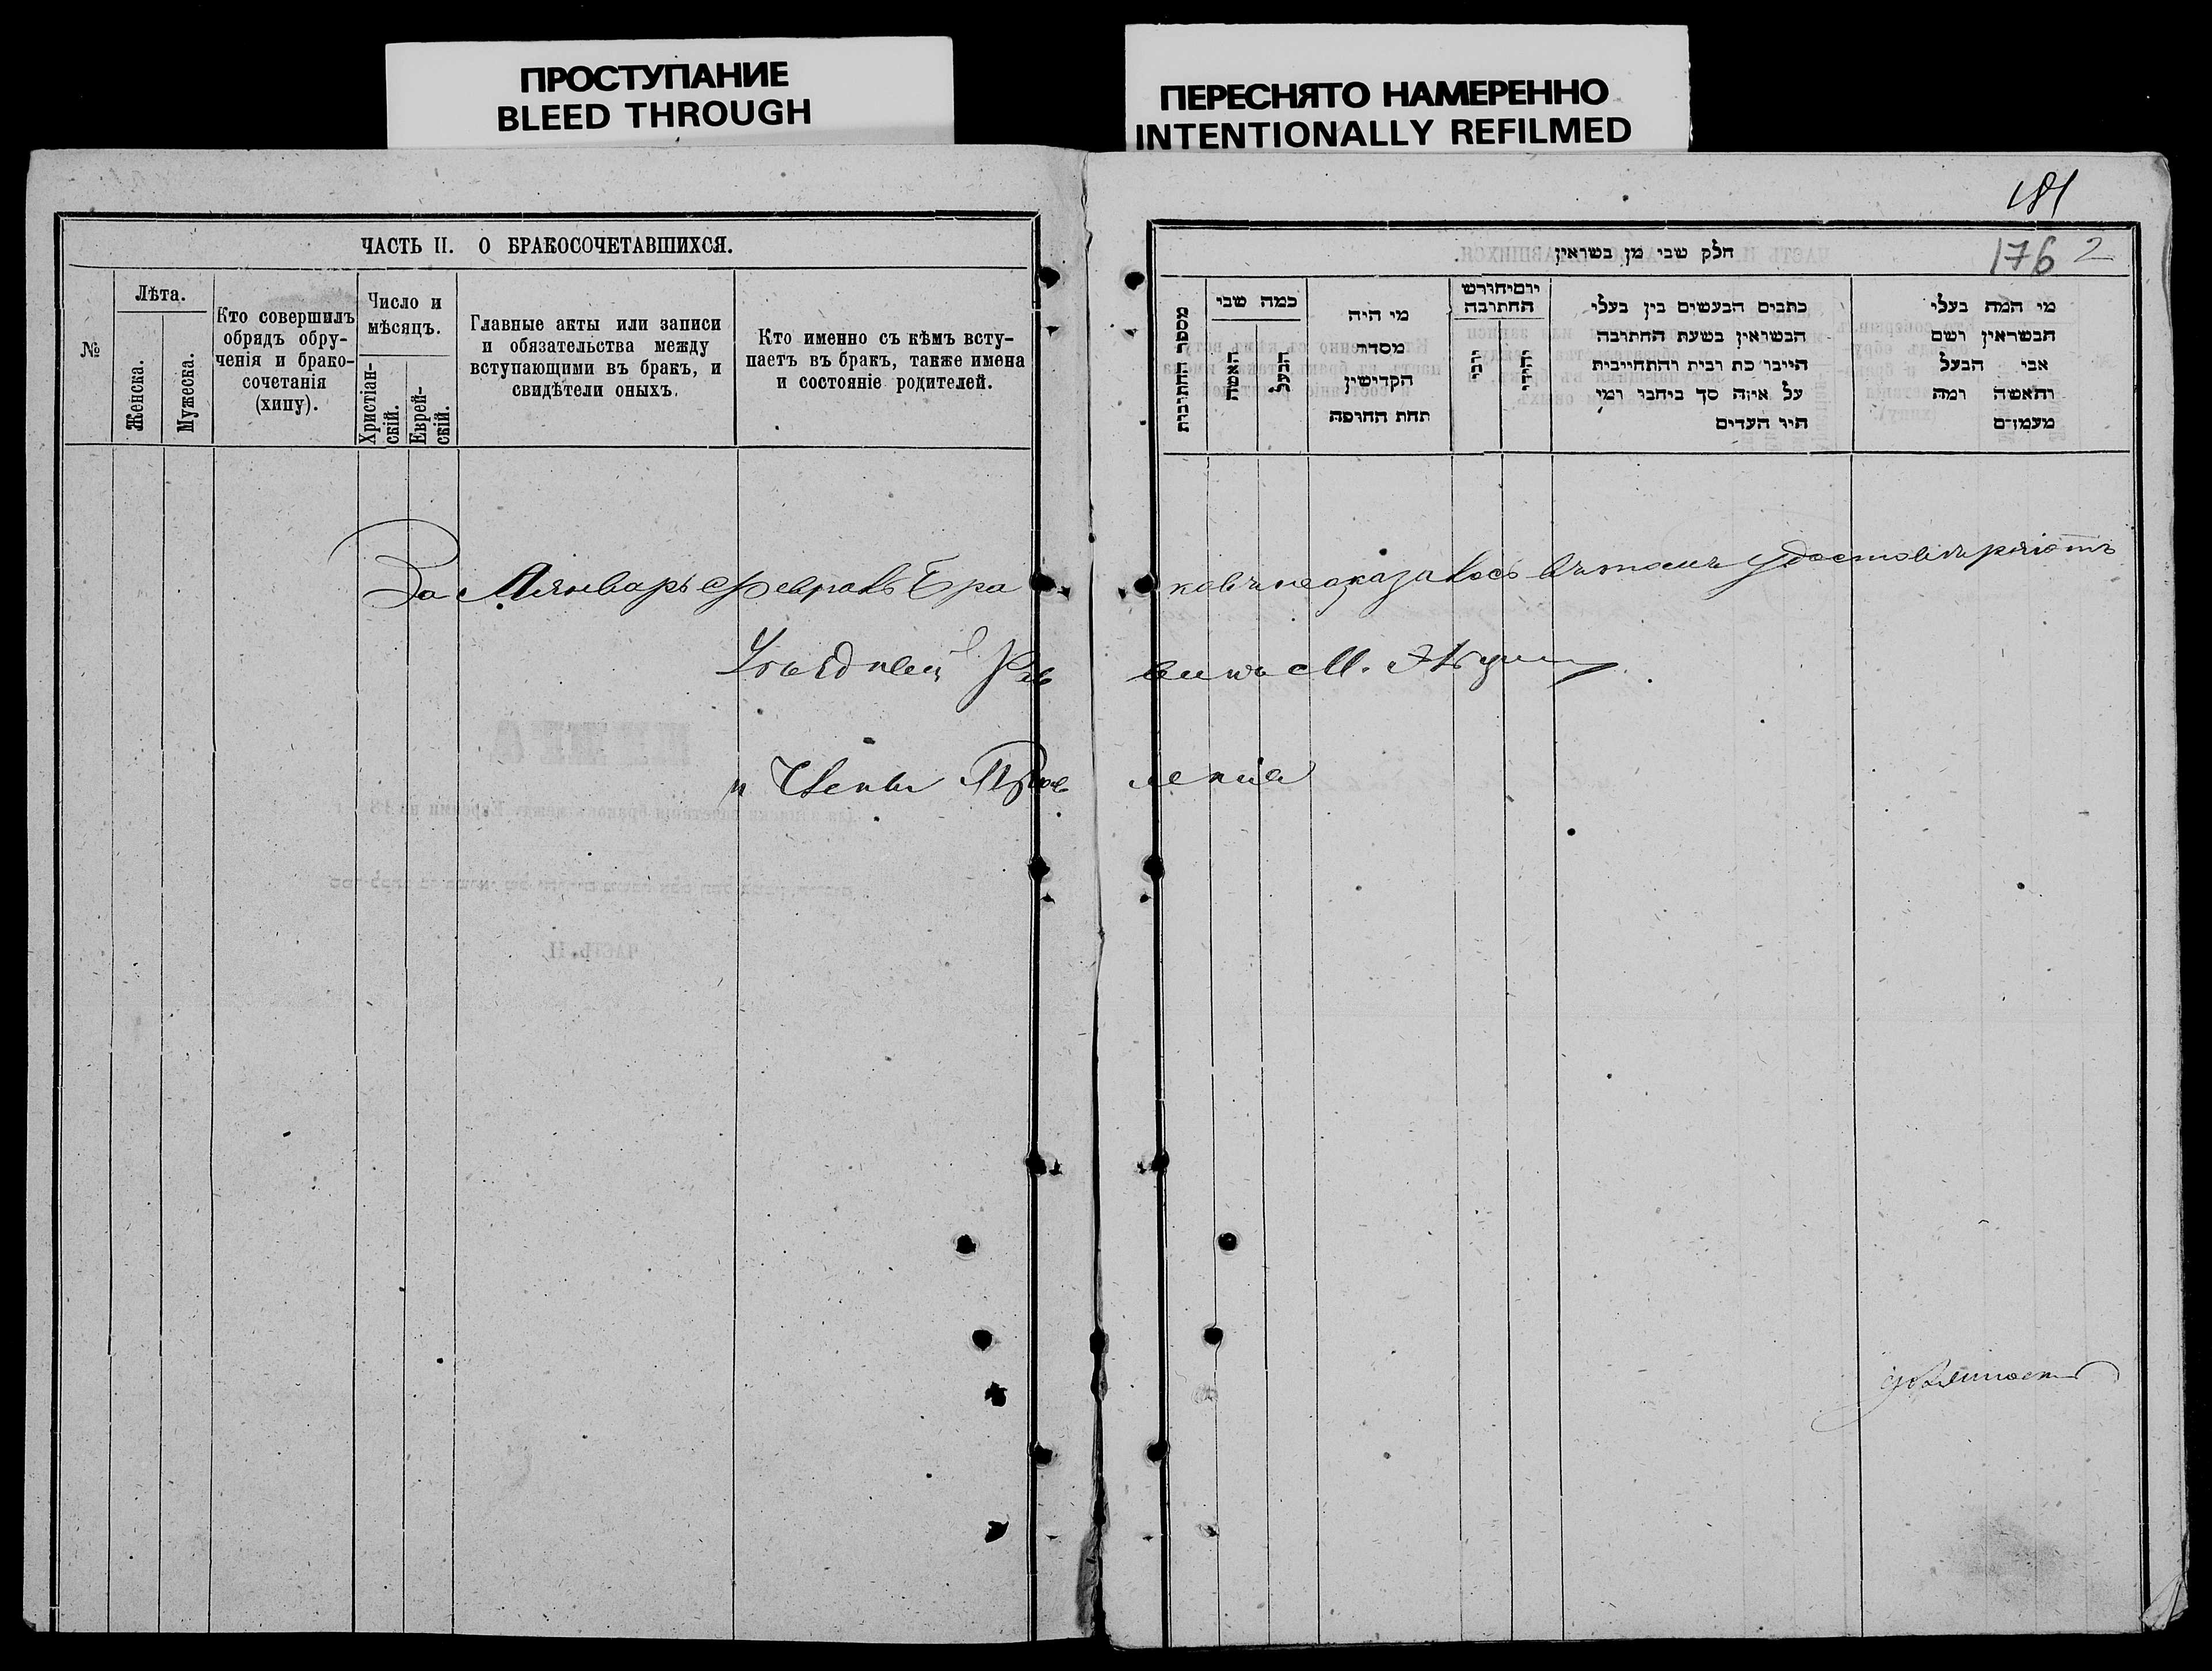 ПРОСТУПАНИЕ
BLEED THROUGH
ПЕРЕСНЯТО НАМЕРЕННО
INTENTIONALLY REFILMED
181
176 2
ЧАСТЬ II. О БРАКОСОЧЕТАВШИХСЯ.
№
Лѣта.
Женска.
Мужеска.
Кто совершилъ
обрядъ обру-
ченія и брако-
сочетанія
(хипу).
Число и
мѣсяцъ.
Христіан-
скій.
Еврей-
скій.
Главные акты или записи
и обязательства между
вступающими въ бракъ, и
свидѣтели оныхъ.
Кто именно съ кѣмъ всту-
паетъ въ бракъ, также имена
и состояніе родителей.
חלק שני מן נשואין
מספר החתונות
כמה שני
האשה
הבעל
מי היה
מסדר
הקדישין
תחת החופה
יום וחודש
החתונה
כתבים הנעשים בין בעלי
הנשואין בשעת החתונה
היינו כת ובית והתחייבות
על איזה סך ביחבו ומי
היו העדים
מי המה בעלי
הנשואין ושם
אבי הבעל
והאשה ומה
מעמדם
За Январь Февраль Бра ковъ не оказалось въ томъ удостовѣряютъ
Уѣздный Ра винъ М.
и Члены Прав ленія